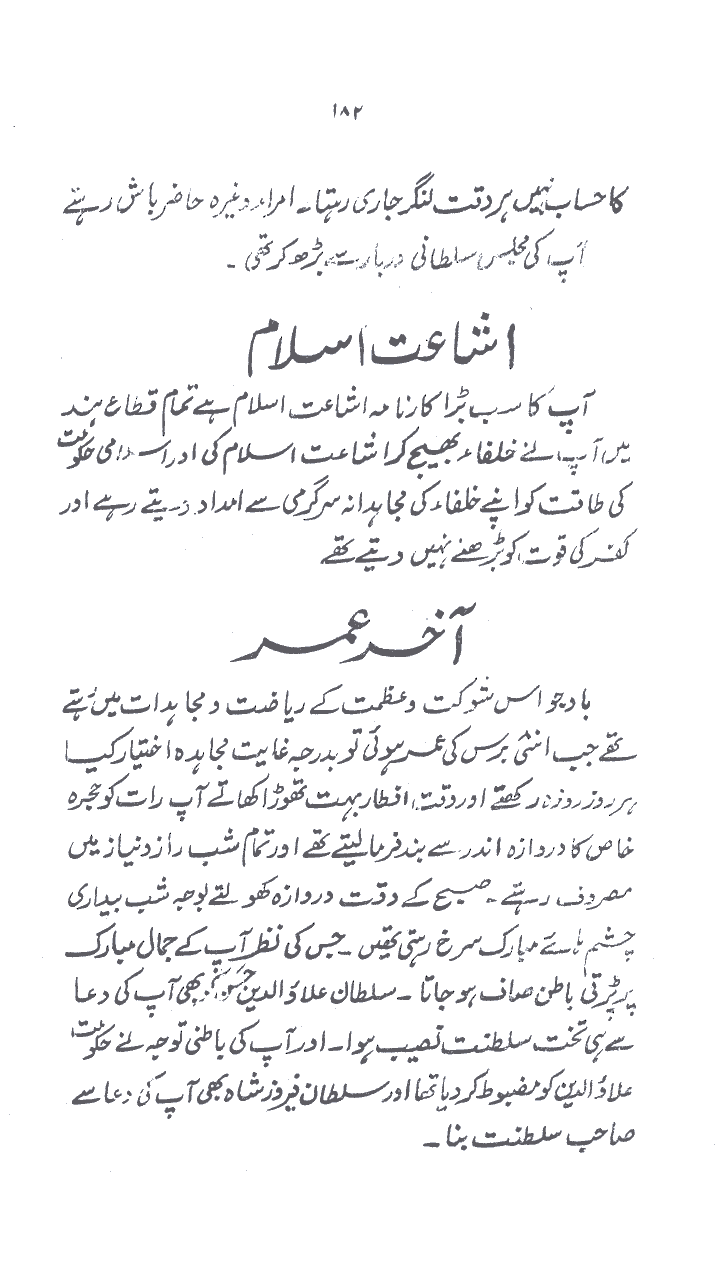 ۱۸۲
کا حساب نہیں ہر وقت لنگر جاری رہتا۔ امراء وغیرہ حاضر باش رہتے
آپ کی مجلس سلطانی دربار سے بڑھ کر تھی ۔
اشاعت اسلام
آپ کا سب بڑا کارنامہ اشاعت اسلام ہے تمام قطاع ہند
میں آپ نے خلفاء بھیج کر اشاعت اسلام کی اور اسلامی حکومت
کی طاقت کو اپنے خلفاء کی مجاہدانہ سرگرمی سے امداد دیتے رہے اور
کفر کی قوت کو بڑھنے نہیں دیتے تھے
آخر عمر
باوجو اس شوکت و عظمت کے ریاضت و مجاہدات میں رہتے
تھے جب انٹی برس کی عمر ہوئی تو بدرجہ غایت مجاہدہ اختیار کیا
ہر روز روزہ رکھتے اور وقت افطار بہت تھوڑا کھاتے آپ رات کو حجرہ
خاص کا دروازہ اندر سے بند فرما لیتے تھے اور تمام شب راز و نیاز میں
مصروف رہتے ۔ صبح کے وقت دروازہ کھولتے بوجہ شب بیداری
چشم ہائے مبارک سرخ رہتی تھیں ۔ جس کی نظر آپ کے جمال مبارک
پر پڑتی باطن صاف ہو جاتا ۔ سلطان علاؤ الدین بھی آپ کی دعا
سے ہی تخت سلطنت نصیب ہوا ۔ اور آپ کی باطنی توجہ نے حکومت
علاؤ الدین کو مضبوط کر دیا تھا اور سلطان فیروز شاہ بھی آپ کی دعا سے
صاحب سلطنت بنا ۔